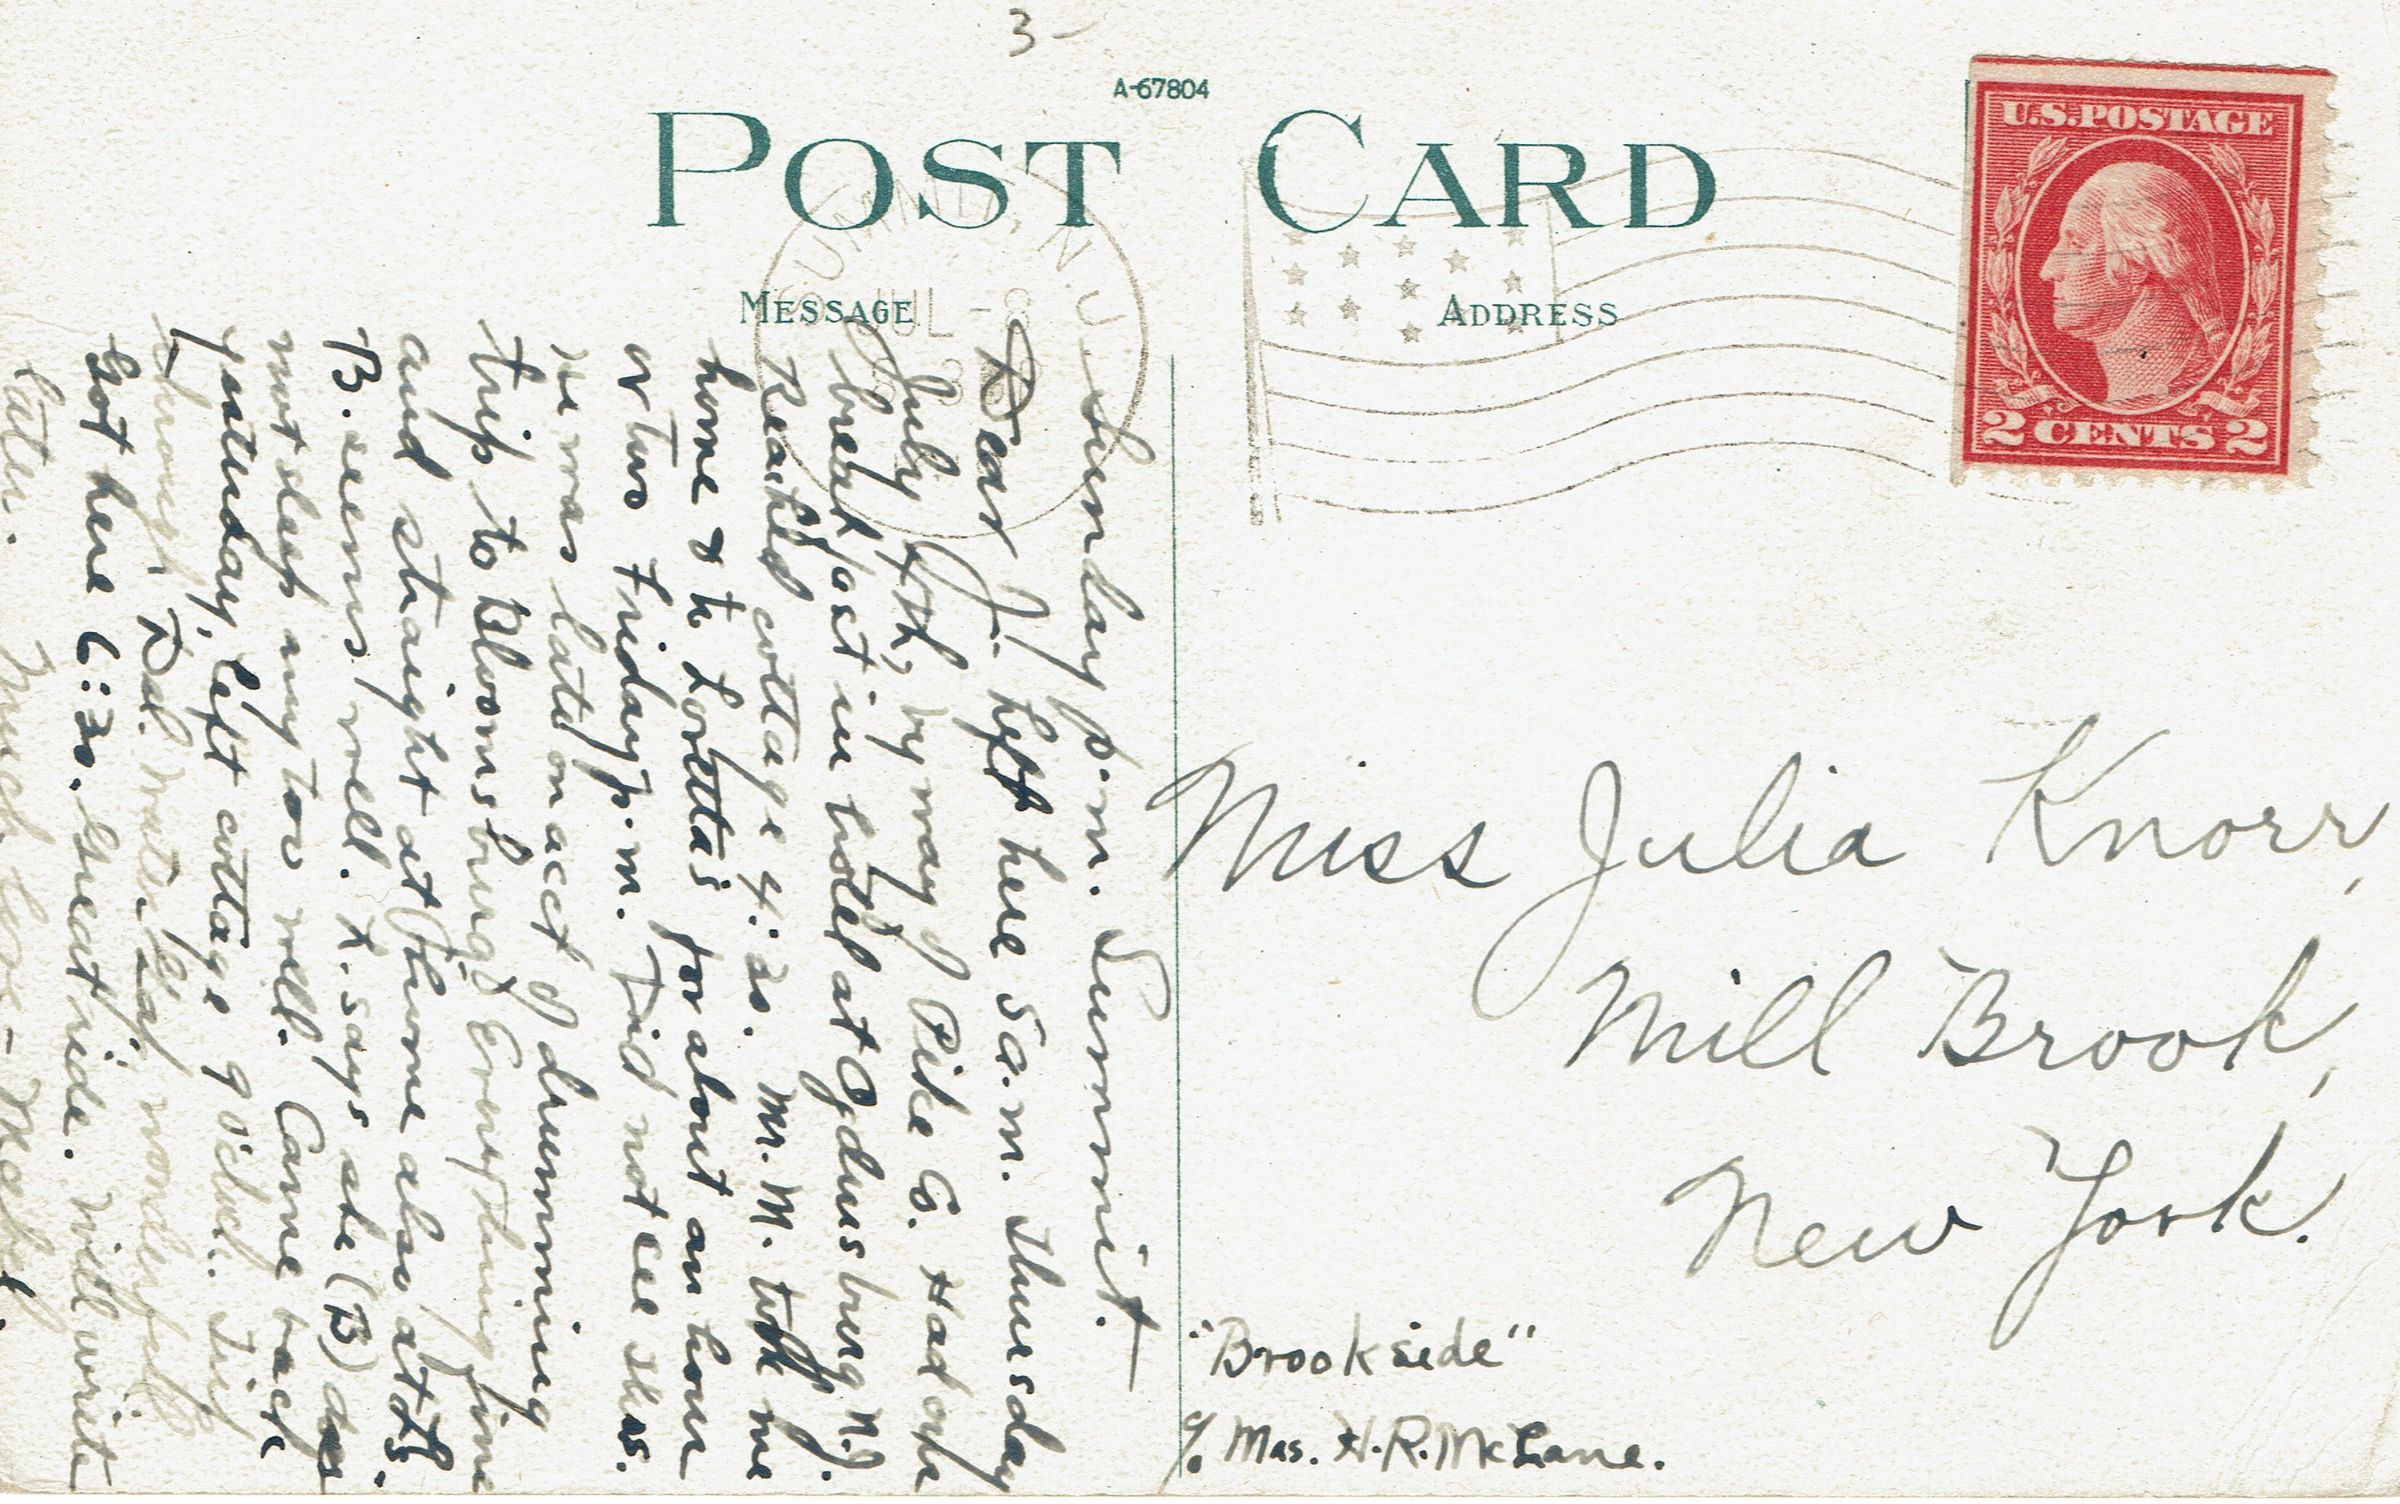 3
A-67804
POST CARD
MESSAGE
ADDRESS
U.S. POSTAGE
2 CENTS 2
SUMMIT, N.J.
JUL -8
Sunday p.m. Summit.
Dear J. Left here 5 a.m. Thursday
July 4th, by way of Pike Co. Had our
breakfast in hotel at Ogdensburg N.J.
Reached cottage 4:20. Mr. M. took me
home & to Loretta's for about an hour
or two Friday p.m. Did not see Thos.
he was late on acct of drumming
trip to Bloomsburg. Everything fine
and straight at home also at L's.
B. seems well. K. says she (B) does
not sleep any too well. Came back
yesterday, left cottage 9 o'clock.
through Del. Water Gap, wonderful
Got here 6:30. Great ride. Will write
later. Much love - Mabel.
Miss Julia Knorr,
Mill Brook,
New York.
"Brookside"
c/o Mrs. H.R. McLane.